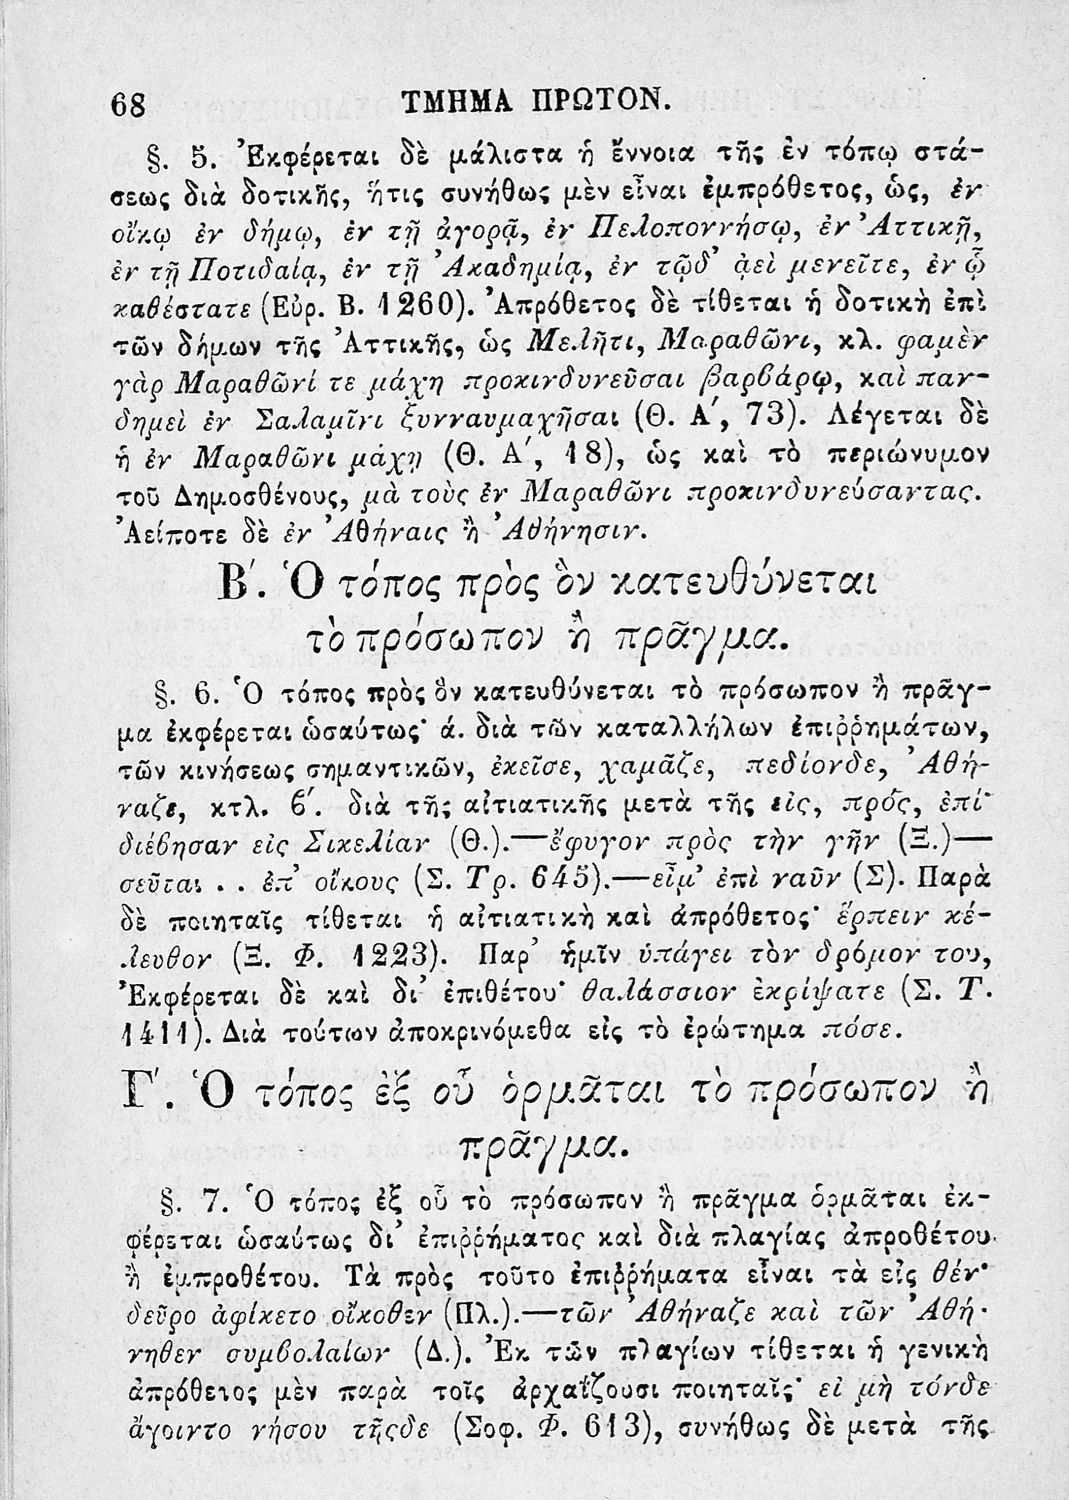 68 ΤΜΗΜΑ ΠΡΩΤΟΝ.
§. 5. Ἐκφέρεται δὲ μάλιστα ἡ ἔννοια τῆς ἐν τόπῳ στά-
σεως διὰ δοτικῆς, ἥτις συνήθως μὲν εἶναι ἐμπρόθετος, ὡς, ἐν
οἴκῳ ἐν δήμῳ, ἐν τῇ ἀγορᾷ, ἐν Πελοποννήσῳ, ἐν Ἀττικῇ,
ἐν τῇ Ποτιδαίᾳ, ἐν τῇ Ἀκαδημίᾳ, ἐν τῷδ’ ἀεὶ μενεῖτε, ἐν ᾧ
καθέστατε (Εὐρ. Β. 1260). Ἀπρόθετος δὲ τίθεται ἡ δοτικὴ ἐπὶ
τῶν δήμων τῆς Ἀττικῆς, ὡς Μελῆτι, Μαραθῶνι, κλ. φαμὲν
γὰρ Μαραθῶνί τε μάχῃ προκινδυνεῦσαι βαρβάρῳ, καὶ παν-
δημεὶ ἐν Σαλαμῖνι ξυνναυμαχῆσαι (Θ. Α΄, 73). Λέγεται δὲ
ἡ ἐν Μαραθῶνι μάχη (Θ. Α΄, 18), ὡς καὶ τὸ περιώνυμον
τοῦ Δημοσθένους, μὰ τοὺς ἐν Μαραθῶνι προκινδυνεύσαντας.
Ἀείποτε δὲ ἐν Ἀθήναις ἢ Ἀθήνησιν.
Β΄. Ὁ τόπος πρὸς ὃν κατευθύνεται
τὸ πρόσωπον ἢ πρᾶγμα.
§. 6. Ὁ τόπος πρὸς ὃν κατευθύνεται τὸ πρόσωπον ἢ πρᾶγ-
μα ἐκφέρεται ὡσαύτως· ά. διὰ τῶν καταλλήλων ἐπιῤῥημάτων,
τῶν κινήσεως σημαντικῶν, ἐκεῖσε, χαμᾶζε, πεδίονδε, Ἀθή-
ναζε, κτλ. β΄. διὰ τῆς αἰτιατικῆς μετὰ τῆς εἰς, πρός, ἐπί·
διέβησαν εἰς Σικελίαν (Θ.).—ἔφυγον πρὸς τὴν γῆν (Ξ.)—
σεῦται . . ἐπ’ οἴκους (Σ. Τρ. 645).—εἶμ’ ἐπὶ ναῦν (Σ). Παρὰ
δὲ ποιηταῖς τίθεται ἡ αἰτιατικὴ καὶ ἀπρόθετος· ἕρπειν κέ-
λευθον (Ξ. Φ. 1223). Παρ’ ἡμῖν ὑπάγει τὸν δρόμον του,
Ἐκφέρεται δὲ καὶ δι’ ἐπιθέτου· θαλάσσιον ἐκρίψατε (Σ. Τ.
1411). Διὰ τούτων ἀποκρινόμεθα εἰς τὸ ἐρώτημα πόσε.
Γ΄. Ὁ τόπος ἐξ οὗ ὁρμᾶται τὸ πρόσωπον ἢ
πρᾶγμα.
§. 7. Ὁ τόπος ἐξ οὗ τὸ πρόσωπον ἢ πρᾶγμα ὁρμᾶται ἐκ-
φέρεται ὡσαύτως δι’ ἐπιῤῥήματος καὶ διὰ πλαγίας ἀπροθέτου
ἢ ἐμπροθέτου. Τὰ πρὸς τοῦτο ἐπιῤῥήματα εἶναι τὰ εἰς θέν·
δεῦρο ἀφίκετο οἴκοθεν (Πλ.).—τῶν Ἀθήναζε καὶ τῶν Ἀθή-
νηθεν συμβολαίων (Δ.). Ἐκ τῶν πλαγίων τίθεται ἡ γενικὴ
ἀπρόθετος μὲν παρὰ τοῖς ἀρχαΐζουσι ποιηταῖς· εἰ μὴ τόνδε
ἄγοιντο νήσου τῆςδε (Σοφ. Φ. 613), συνήθως δὲ μετὰ τῆς